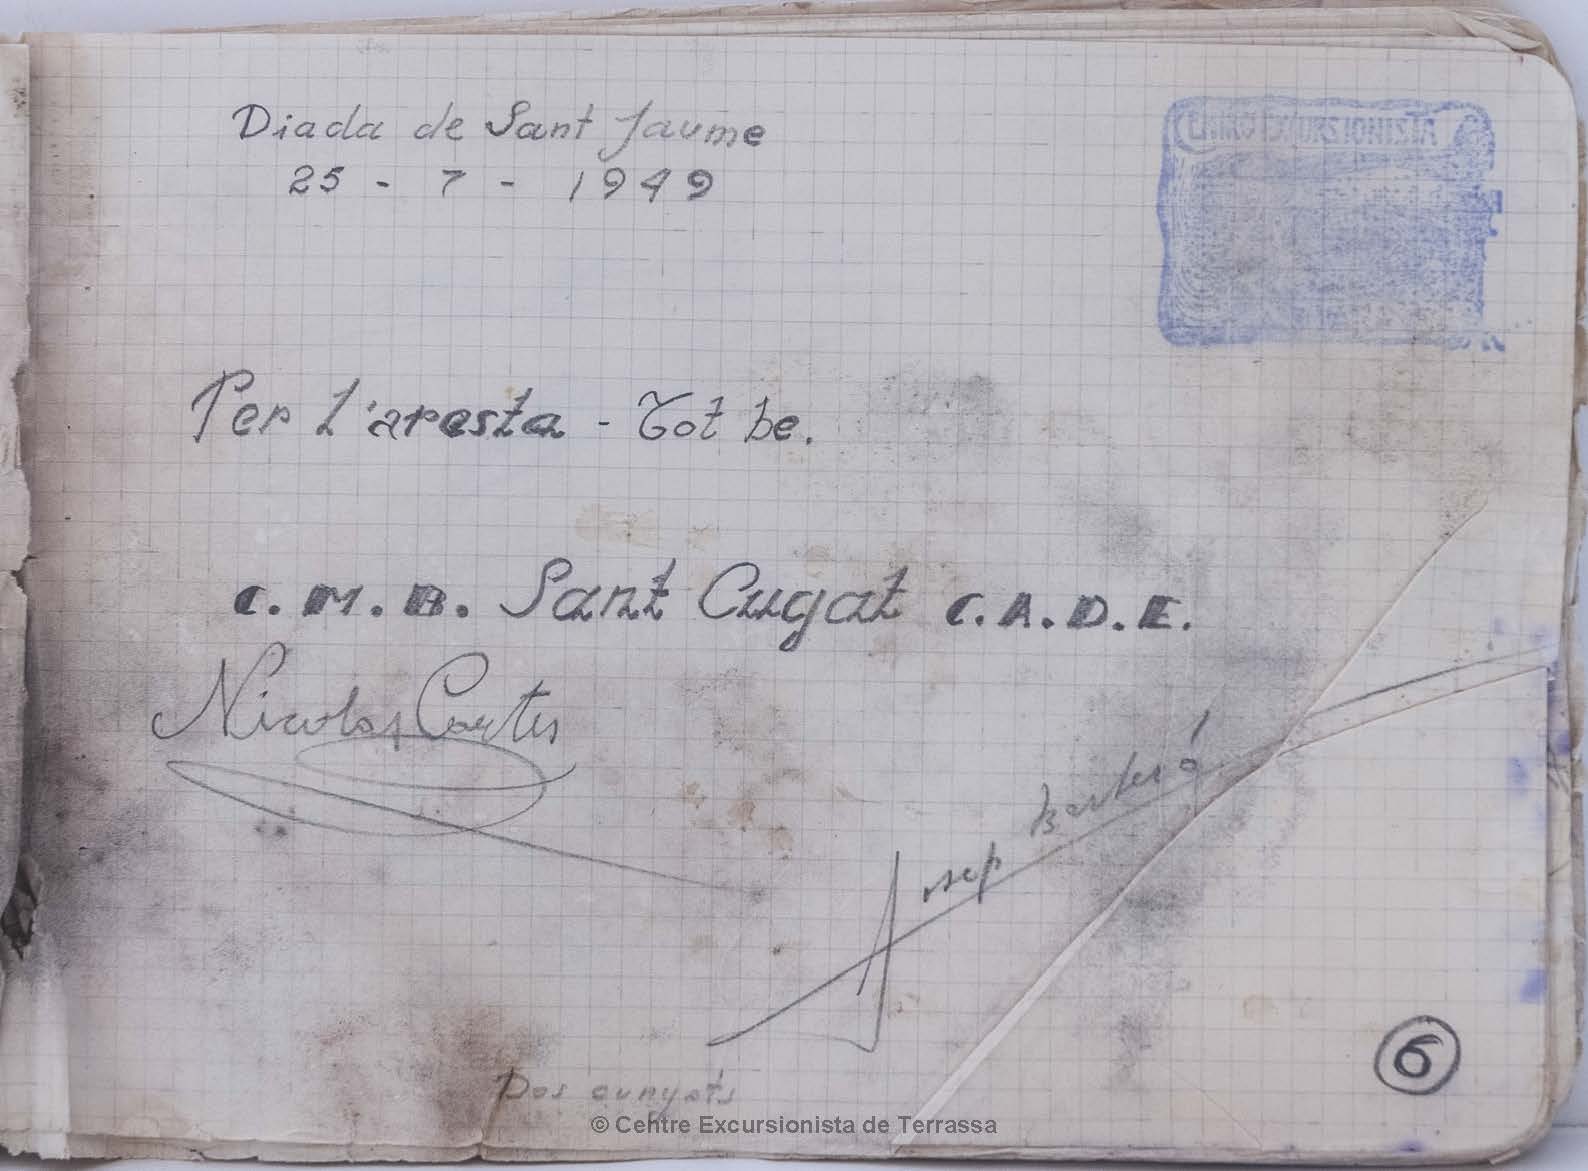 Diada de Sant Jaume
25 - 7 - 1949
CENTRO EXCURSIONISTA
Per l'aresta - Tot be.
C.M.B. Sant Cugat C.A.D.E.
Nicolas Cortes
Josep Barberá
Dos cunyats
6
© Centre Excursionista de Terrassa